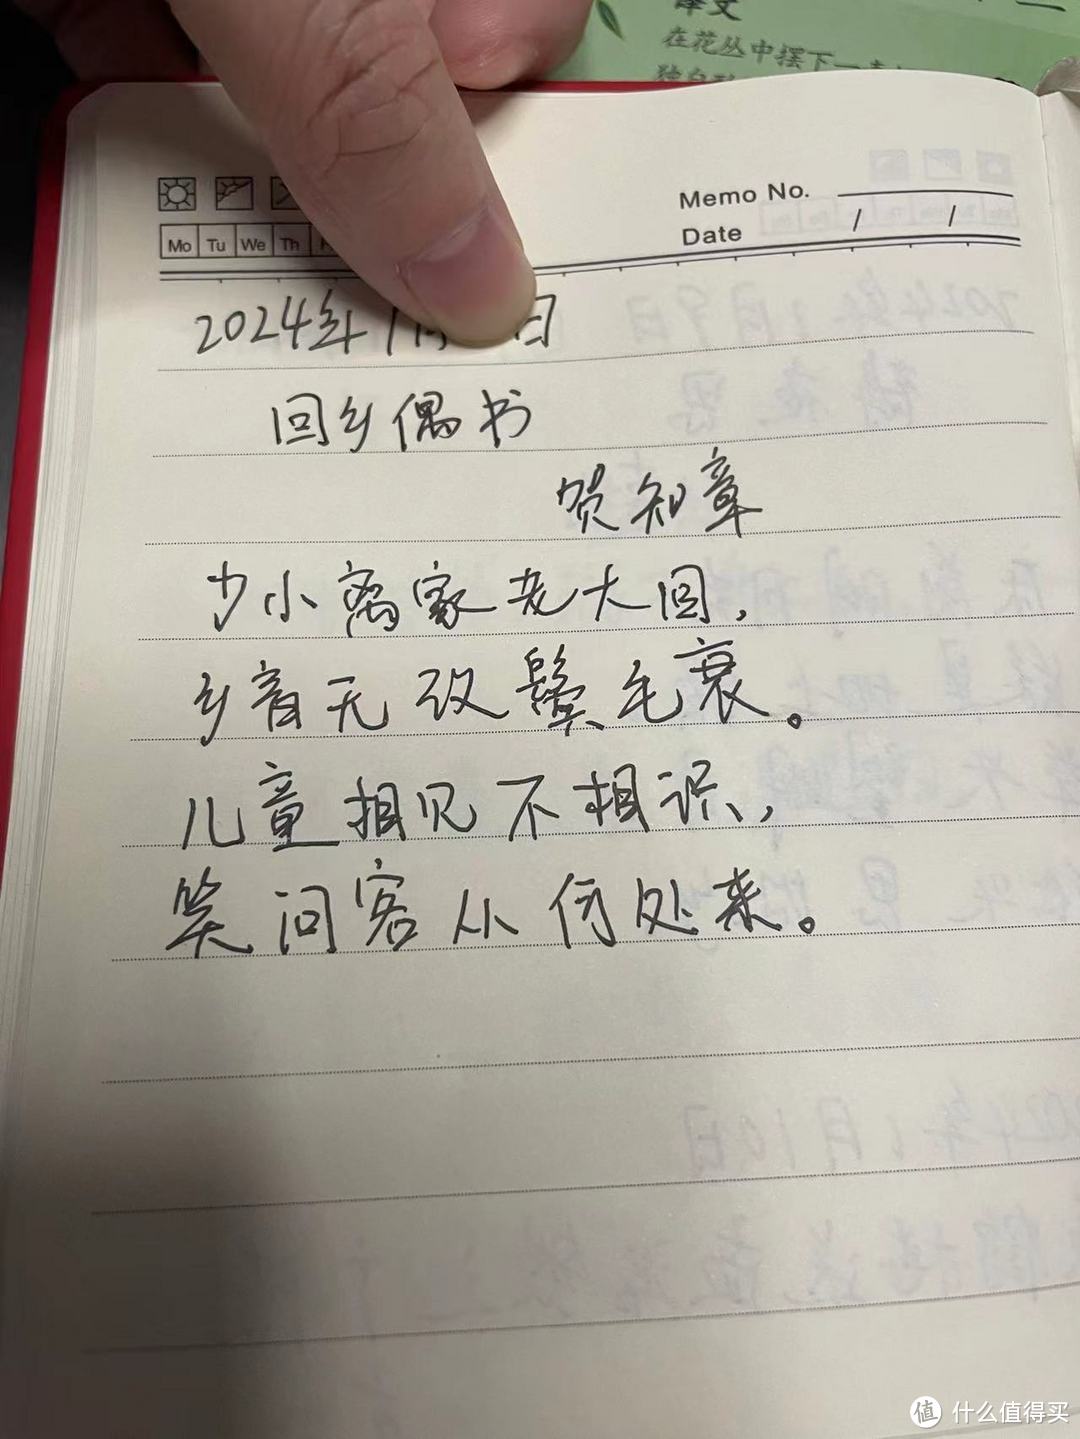 译文
在花丛中摆下一
Memo No.
Mo Tu We Th
Date / /
2024年1月 日
回乡偶书
贺知章
少小离家老大回，
乡音无改鬓毛衰。
儿童相见不相识，
笑问客从何处来。
值 什么值得买